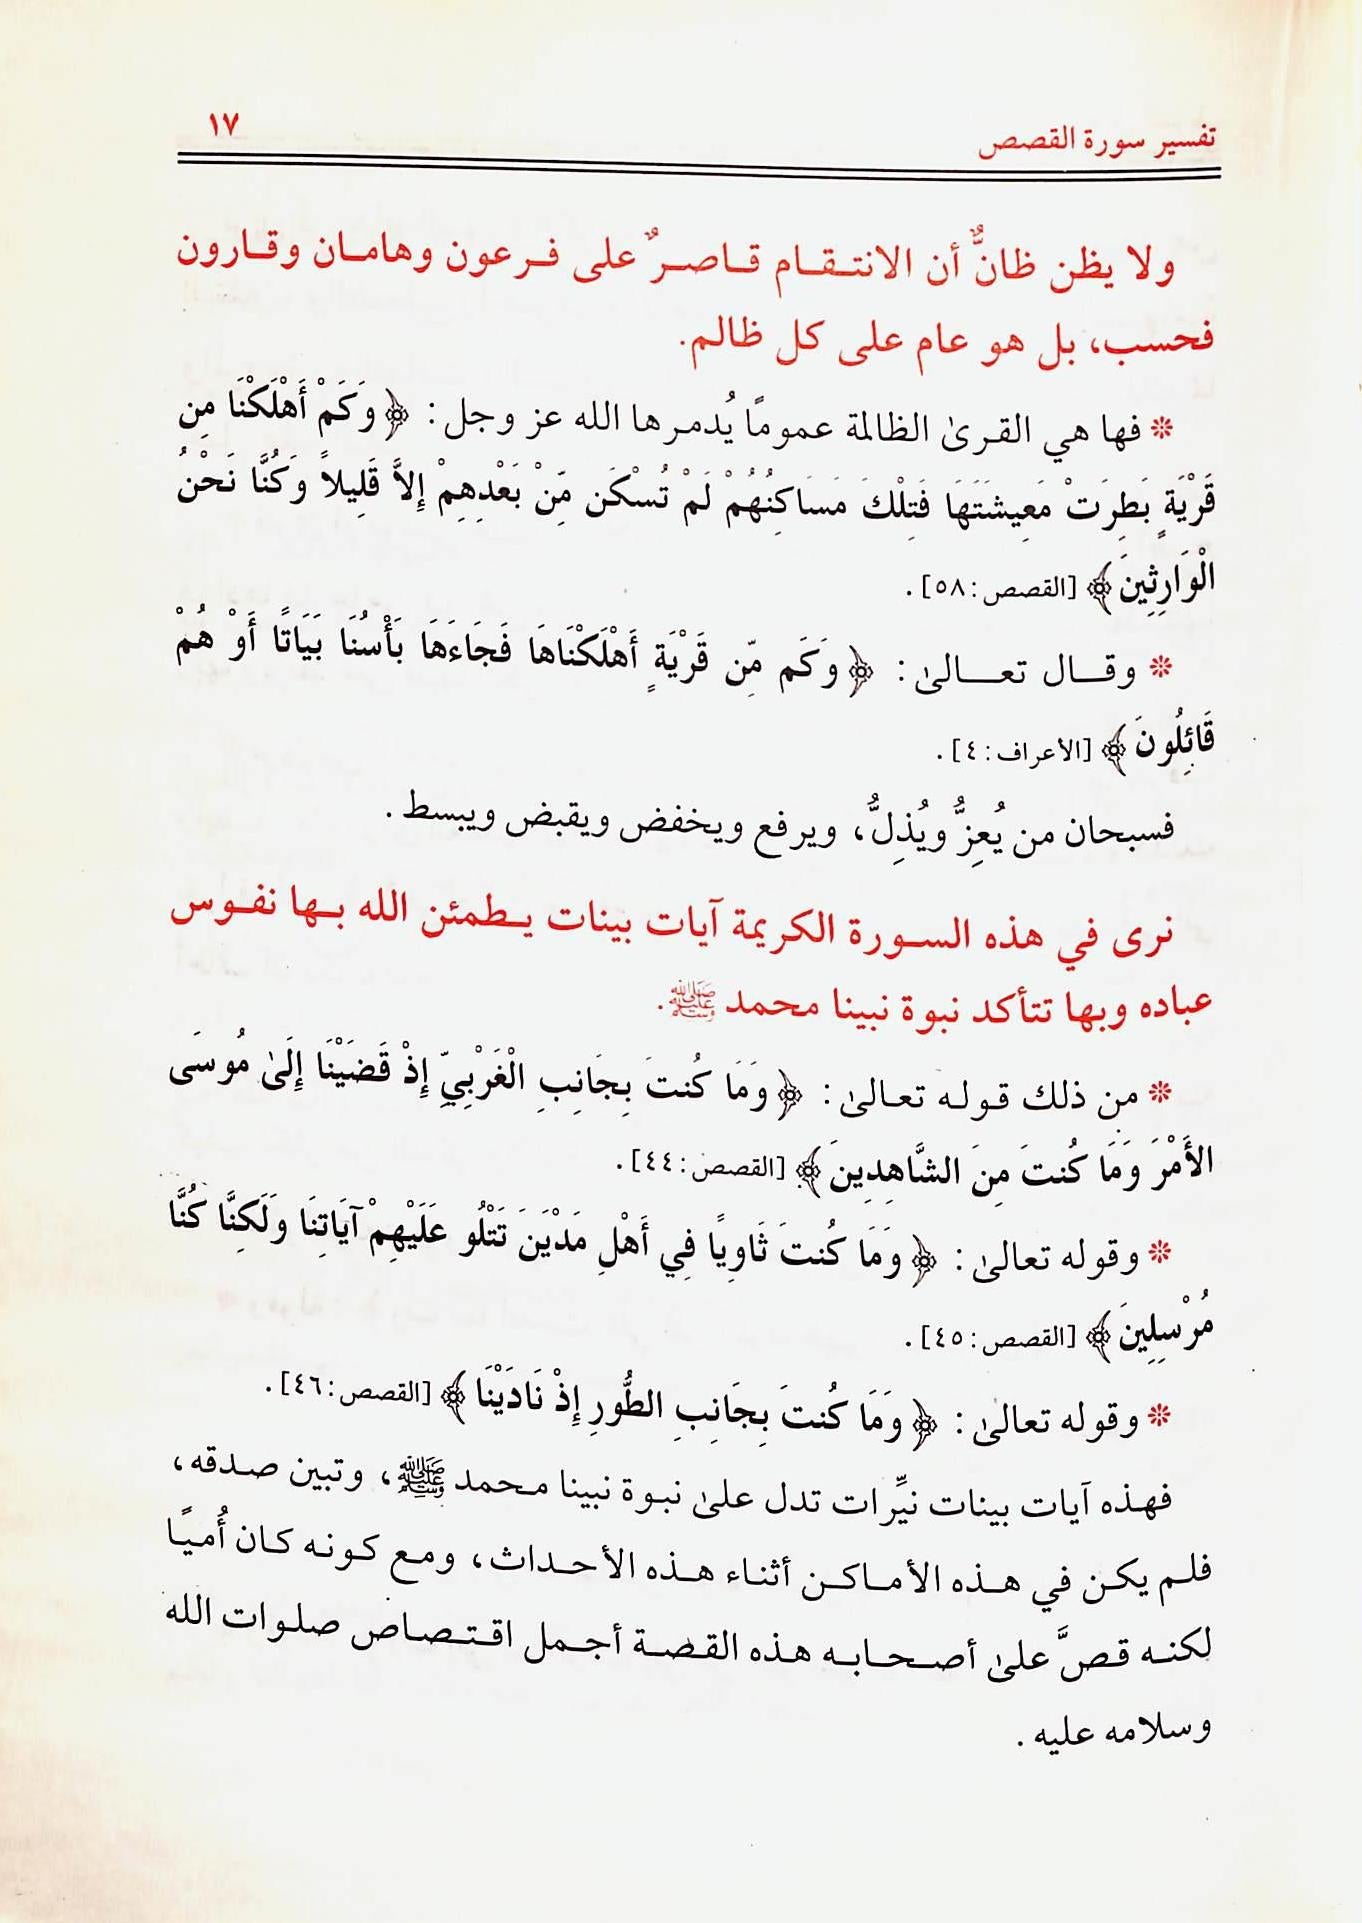 تفسير سورة القصص ١٧
ولا يظن ظانٌّ أن الانتقام قاصرٌ على فرعون وهامان وقارون
فحسب، بل هو عام على كل ظالم.
* فها هي القرىٰ الظالمة عمومًا يُدمرها الله عز وجل: ﴿وَكَمْ أَهْلَكْنَا مِن
قَرْيَةٍ بَطِرَتْ مَعِيشَتَهَا فَتِلْكَ مَسَاكِنُهُمْ لَمْ تُسْكَن مِّنْ بَعْدِهِمْ إِلاَّ قَلِيلاً وَكُنَّا نَحْنُ
الْوَارِثِينَ﴾ [القصص: ٥٨].
* وقال تعالىٰ: ﴿وَكَم مِّن قَرْيَةٍ أَهْلَكْنَاهَا فَجَاءَهَا بَأْسُنَا بَيَاتًا أَوْ هُمْ
قَائِلُونَ﴾ [الأعراف: ٤].
فسبحان من يُعِزُّ ويُذِلُّ، ويرفع ويخفض ويقبض ويبسط.
نرى في هذه السورة الكريمة آيات بينات يطمئن الله بها نفوس
عباده وبها تتأكد نبوة نبينا محمد ﷺ.
* من ذلك قوله تعالىٰ: ﴿وَمَا كُنتَ بِجَانِبِ الْغَرْبِيِّ إِذْ قَضَيْنَا إِلَىٰ مُوسَى
الأَمْرَ وَمَا كُنتَ مِنَ الشَّاهِدِينَ﴾ [القصص: ٤٤].
* وقوله تعالىٰ: ﴿وَمَا كُنتَ ثَاوِيًا فِي أَهْلِ مَدْيَنَ تَتْلُو عَلَيْهِمْ آيَاتِنَا وَلَكِنَّا كُنَّا
مُرْسِلِينَ﴾ [القصص: ٤٥].
* وقوله تعالىٰ: ﴿وَمَا كُنتَ بِجَانِبِ الطُّورِ إِذْ نَادَيْنَا﴾ [القصص: ٤٦].
فهذه آيات بينات نيِّرات تدل علىٰ نبوة نبينا محمد ﷺ، وتبين صدقه،
فلم يكن في هذه الأماكن أثناء هذه الأحداث، ومع كونه كان أُميًا
لكنه قصَّ علىٰ أصحابه هذه القصة أجمل اقتصاص صلوات الله
وسلامه عليه.